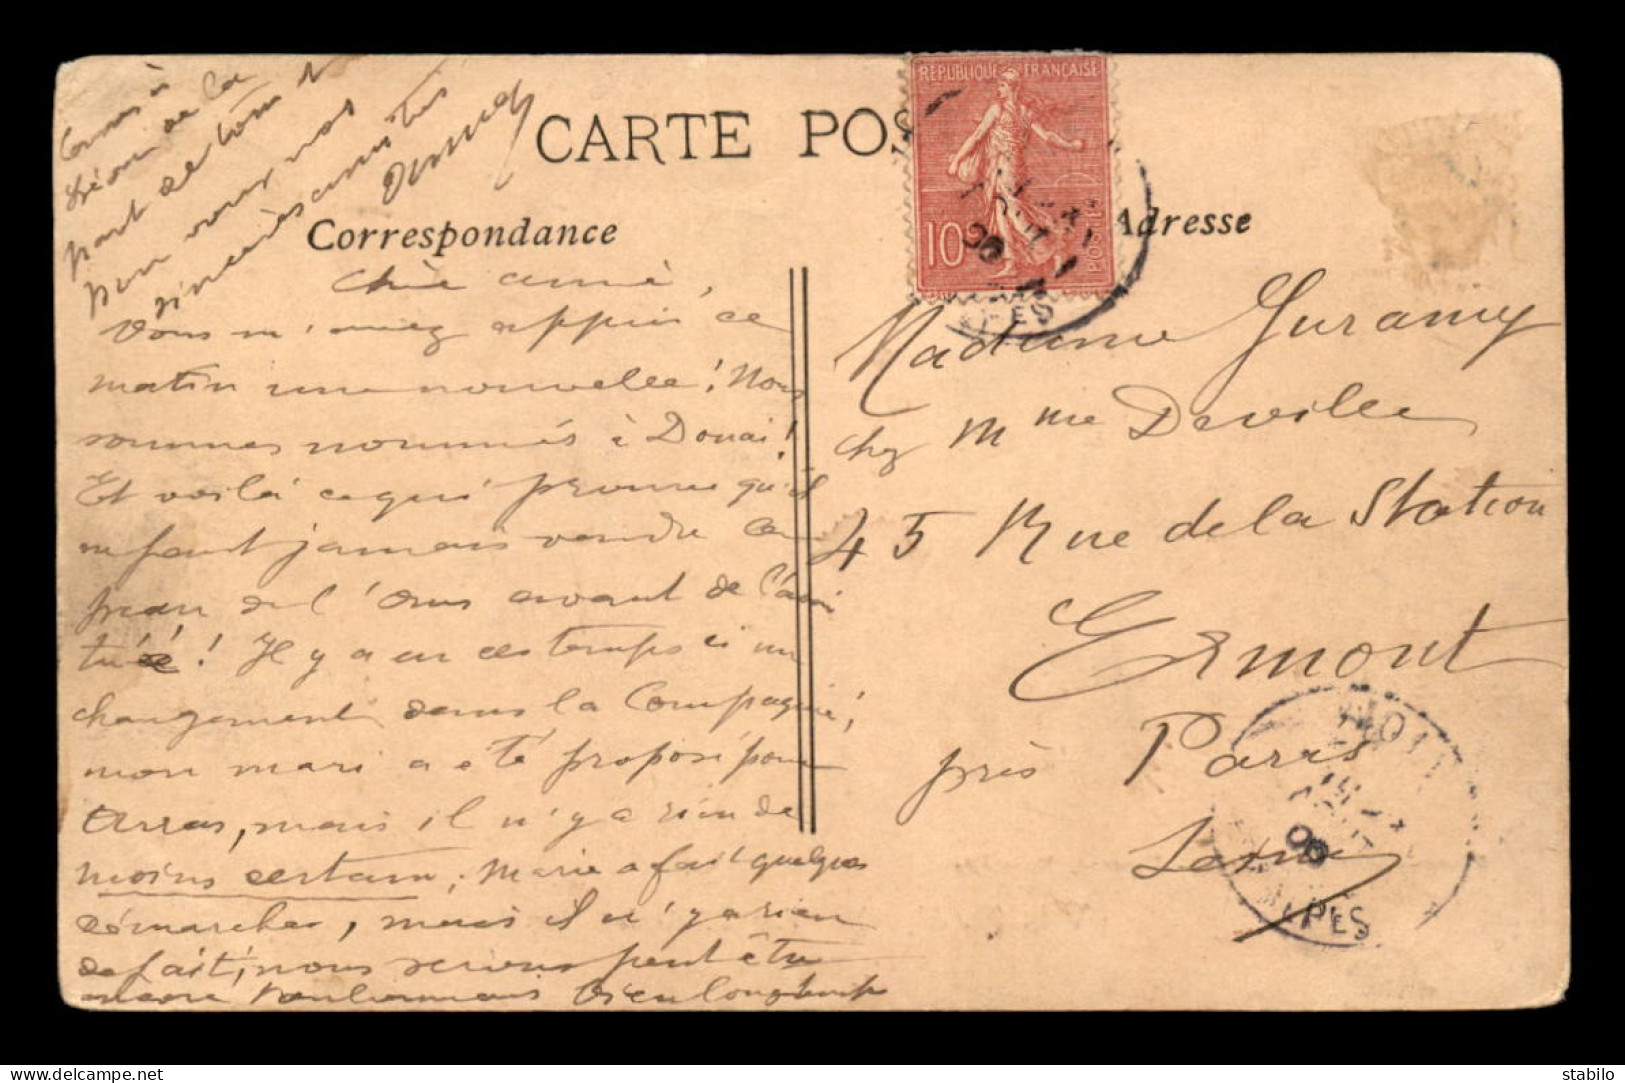 CARTE POS
RÉPUBLIQUE FRANÇAISE
10
POSTES
Correspondance
Adresse
Chère amie,
Vous m'avez appris ce
matin une nouvelle! Nous
sommes nommés à Douai!
Et voilà ce qui prouve qu'il
ne faut jamais vendre la
peau de l'Ours avant de l'avoir
tué! Il y a eu ces temps ci un
changement dans la Compagnie,
mon mari a été proposé pour
Arras, mais il n'y a rien de
moins certain; Marie a fait quelques
démarches, mais il n'y a rien
de fait, nous serons peut être
encore bien longtemps
Léon de la
part de tous
pour vous, nos
sincères amitiés
Madame Guramy
chez Mme Deville
45 Rue de la Station
Ermont
près Paris
PYRÉNÉES